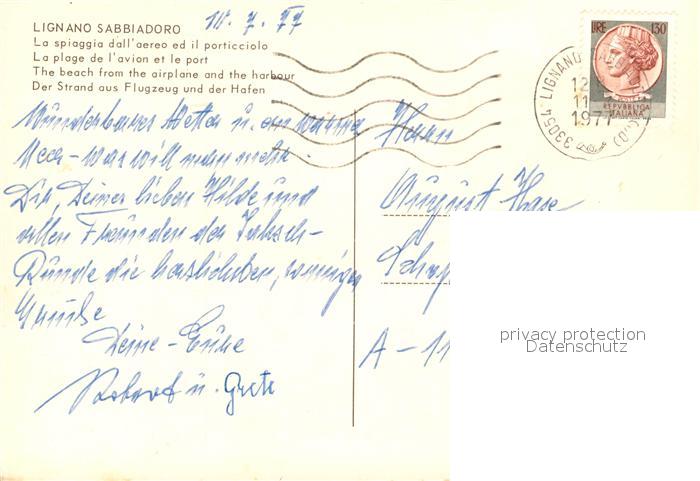 10. 7. 77
LIGNANO SABBIADORO
La spiaggia dall'aereo ed il porticciolo
La plage de l'avion et le port
The beach from the airplane and the harbour
Der Strand aus Flugzeug und der Hafen
LIRE 130
REPVBBLICA
ITALIANA
33054 LIGNANO
12
11
1977
Wunderbares Wetter u. ein warme
Meer - was will man mehr.
Dir, Deiner lieben Hilde und
allen Freunden der
Runde die herzlichsten, sonnigen
Grüße
Deine - Eure
Robert u. Grete
Herrn
August Hase
A - 11
privacy protection
Datenschutz